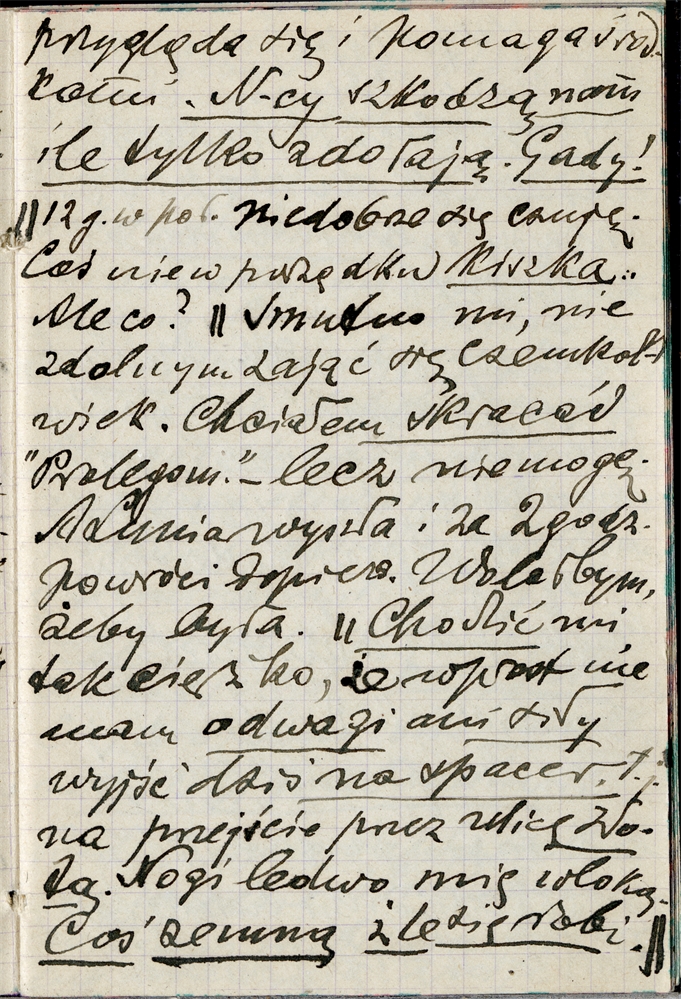 przygląda się i pomaga środ-
kami. N-cy szkodzą nam
ile tylko zdołają. Gady!
|| 12 g. w poł. niedobrze się czuję.
Coś nie w porządku kiszka..
Ale co? || Smutno mi, nie
zdolnym zająć się czemkol-
wiek. Chciałem skracać
"Prolegom." – lecz nie mogę.
wyszła i za 2 godz.
powróci dopiero. Wolałbym,
żeby była. || Chodzić mi
tak ciężko, że wprost nie
mam odwagi ani siły
wyjść dziś na spacer. t.j.
na przejście przez ulicę Zło-
tą. Nogi ledwo mię wloką.
Coś zemną źle się robi. ||